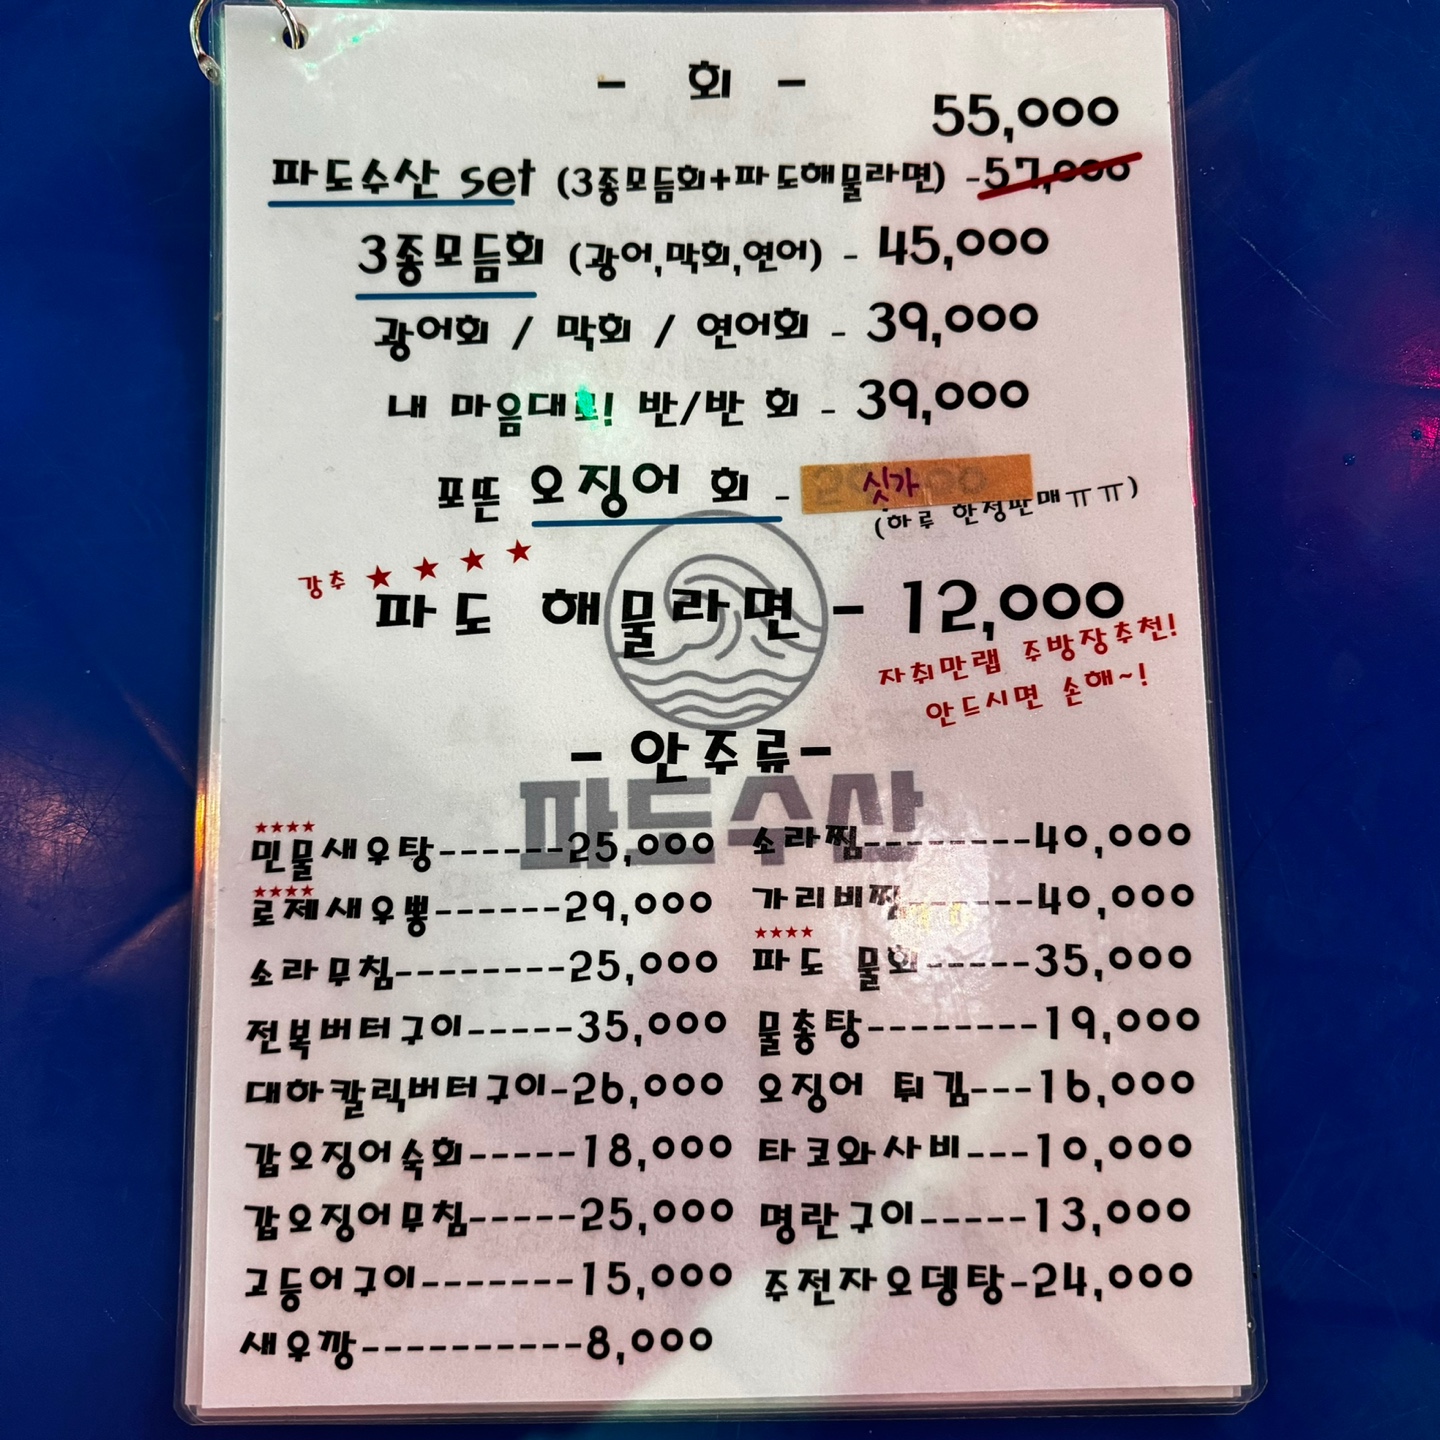 - 회 -
55,000
파도수산 set (3종모듬회+파도해물라면) -57,000
3종모듬회 (광어,막회,연어) - 45,000
광어회 / 막회 / 연어회 - 39,000
내 마음대로! 반/반 회 - 39,000
포뜬 오징어 회 - 싯가
(하루 한정판매ㅠㅠ)
강추 ★ ★ ★ ★
파도 해물라면 - 12,000
자취만랩 주방장추천!
안드시면 손해~!
- 안주류 -
파도수산
★★★★
민물새우탕------25,000
★★★★
로제새우뽕------29,000
소라무침--------25,000
전복버터구이-----35,000
대하칼릭버터구이-26,000
갑오징어숙회-----18,000
갑오징어무침-----25,000
고등어구이-------15,000
새우깡----------8,000
소라찜--------40,000
가리비찜------40,000
★★★★
파도 물회-----35,000
물총탕--------19,000
오징어 튀김---16,000
타코와사비---10,000
명란구이-----13,000
주전자오뎅탕-24,000